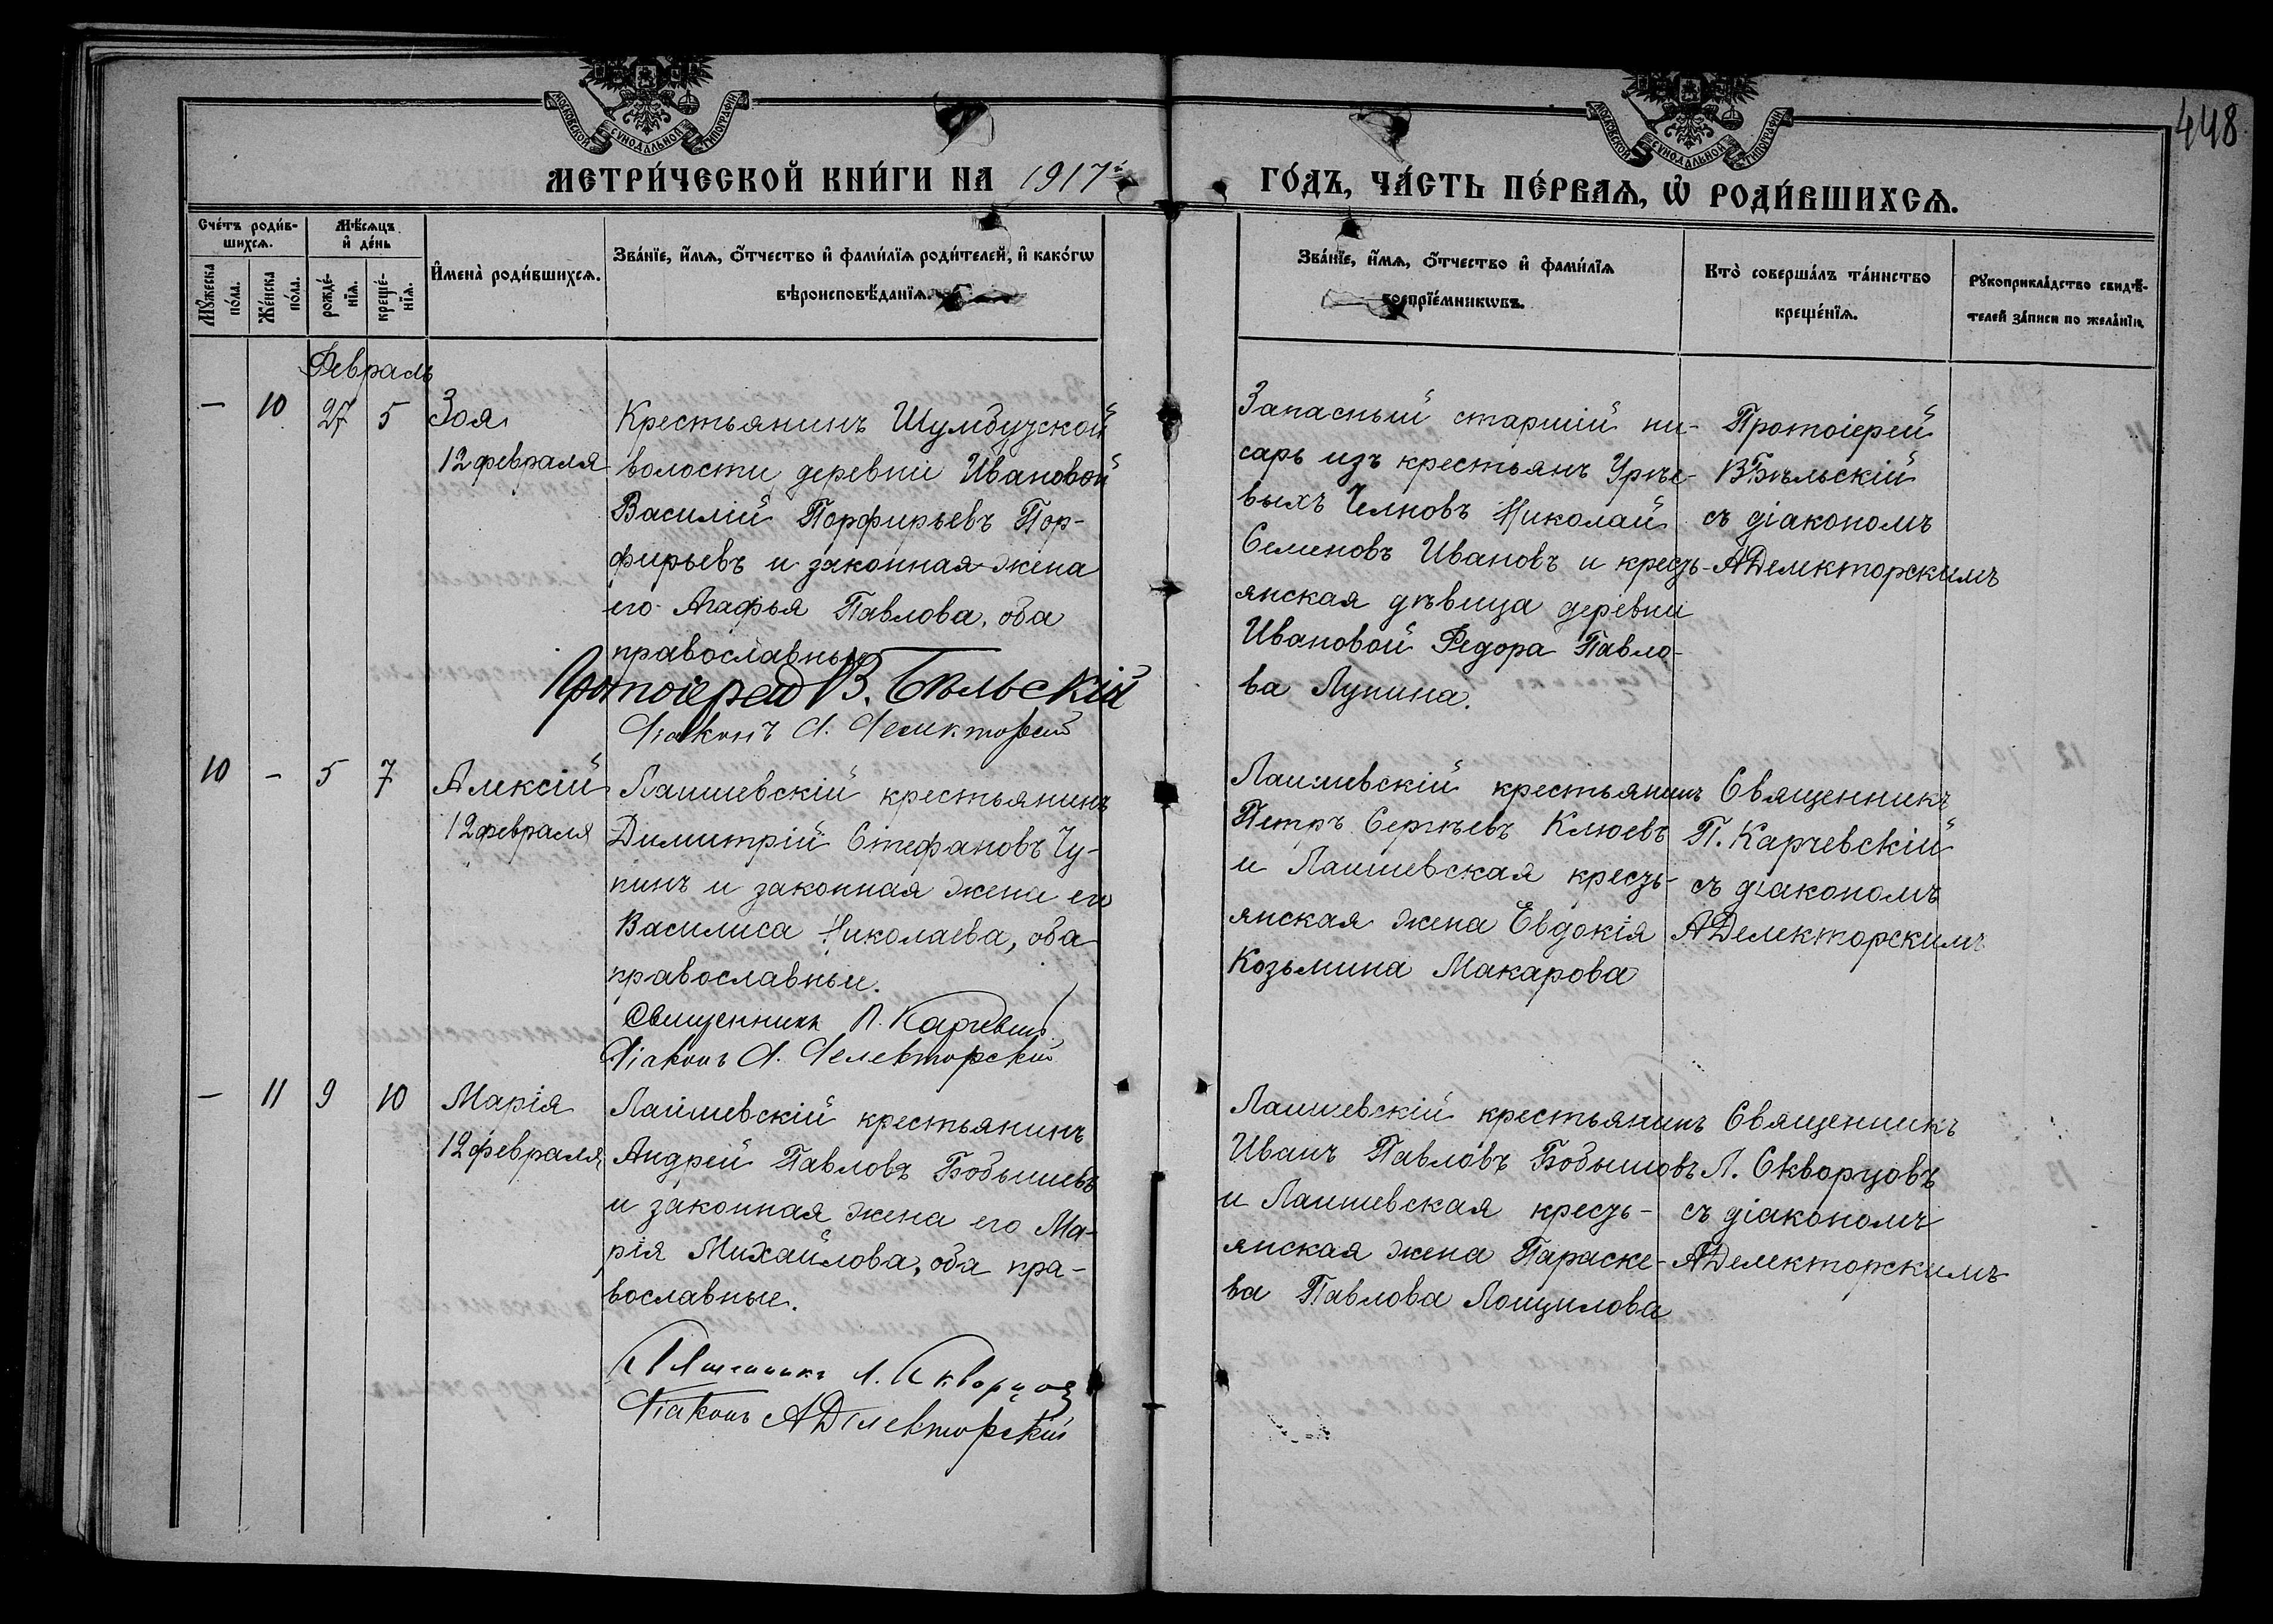 448
МОСКОВСКОЙ СѴНОДАЛЬНОЙ ТИПОГРАФІИ
МОСКОВСКОЙ СѴНОДАЛЬНОЙ ТИПОГРАФІИ
МЕТРИ́ЧЕСКОЙ КНИ́ГИ НА 1917й
ГО́ДЪ, ЧА́СТЬ ПЕ́РВАѦ, Ѡ҆ РОДИ́ВШИХСѦ.
Сче́тъ роди́в-
шихсѧ.
Мѣ́сѧцъ
и҆ де́нь
Мꙋ́жеска
по́ла.
Же́нска
по́ла.
рожде́-
нїѧ.
креще́-
нїѧ.
И҆мена̀ роди́вшихсѧ.
Зва́нїе, и҆́мѧ, ѻ҆́тчество и҆ фами́лїѧ роди́телей, и҆ како́гѡ
вѣроисповѣ́данїѧ.
Зва́нїе, и҆́мѧ, ѻ҆́тчество и҆ фами́лїѧ
воспрїе́мникѡвъ.
Кто̀ соверша́лъ та́инство
креще́нїѧ.
Рꙋкоприкла́дство свидѣ́-
телей за́писи по жела́нїю.
Февраль
— 10 27 5 Зоя
12 февраля
Крестьянинъ Шумбузской
волости деревни Ивановой
Василій Порфирьевъ Пор-
фирьевъ и законная жена
его Агафья Павлова, оба
православные
Протоіерей В. Бѣльскій
Діаконъ А. Делекторскій
Запасный старшій пи-
сарь изъ крестьянъ Урѣе-
выхъ Челновъ Николай
Семеновъ Ивановъ и кресть-
янская дѣвица деревни
Ивановой Федора Павло-
ва Лупина.
Протоіерей
В Бѣльскій
съ діакономъ
А Делекторскимъ
10 — 5 7 Алексій
12 февраля
Лаишевскій крестьянинъ
Димитрій Стефановъ Чу-
пинъ и законная жена его
Василиса Николаева, оба
православные.
Священникъ П. Карчевскій
Діаконъ А. Делекторскій
Лаишевскій крестьянинъ
Петръ Сергѣевъ Клюевъ
и Лаишевская кресть-
янская жена Евдокія
Козьмина Макарова
Священникъ
П. Карчевскій
съ діакономъ
А Делекторскимъ
— 11 9 10 Марія
12 февраля
Лаишевскій крестьянинъ
Андрей Павловъ Бобышевъ
и законная жена его Ма-
рія Михайлова, оба пра-
вославные.
Священникъ Л. Скворцовъ
Діаконъ А Делекторскій
Лаишевскій крестьянинъ
Иванъ Павловъ Бобышовъ
и Лаишевская кресть-
янская жена Параске-
ва Павлова Лощилова
Священникъ
Л. Скворцовъ
съ діакономъ
А Делекторскимъ